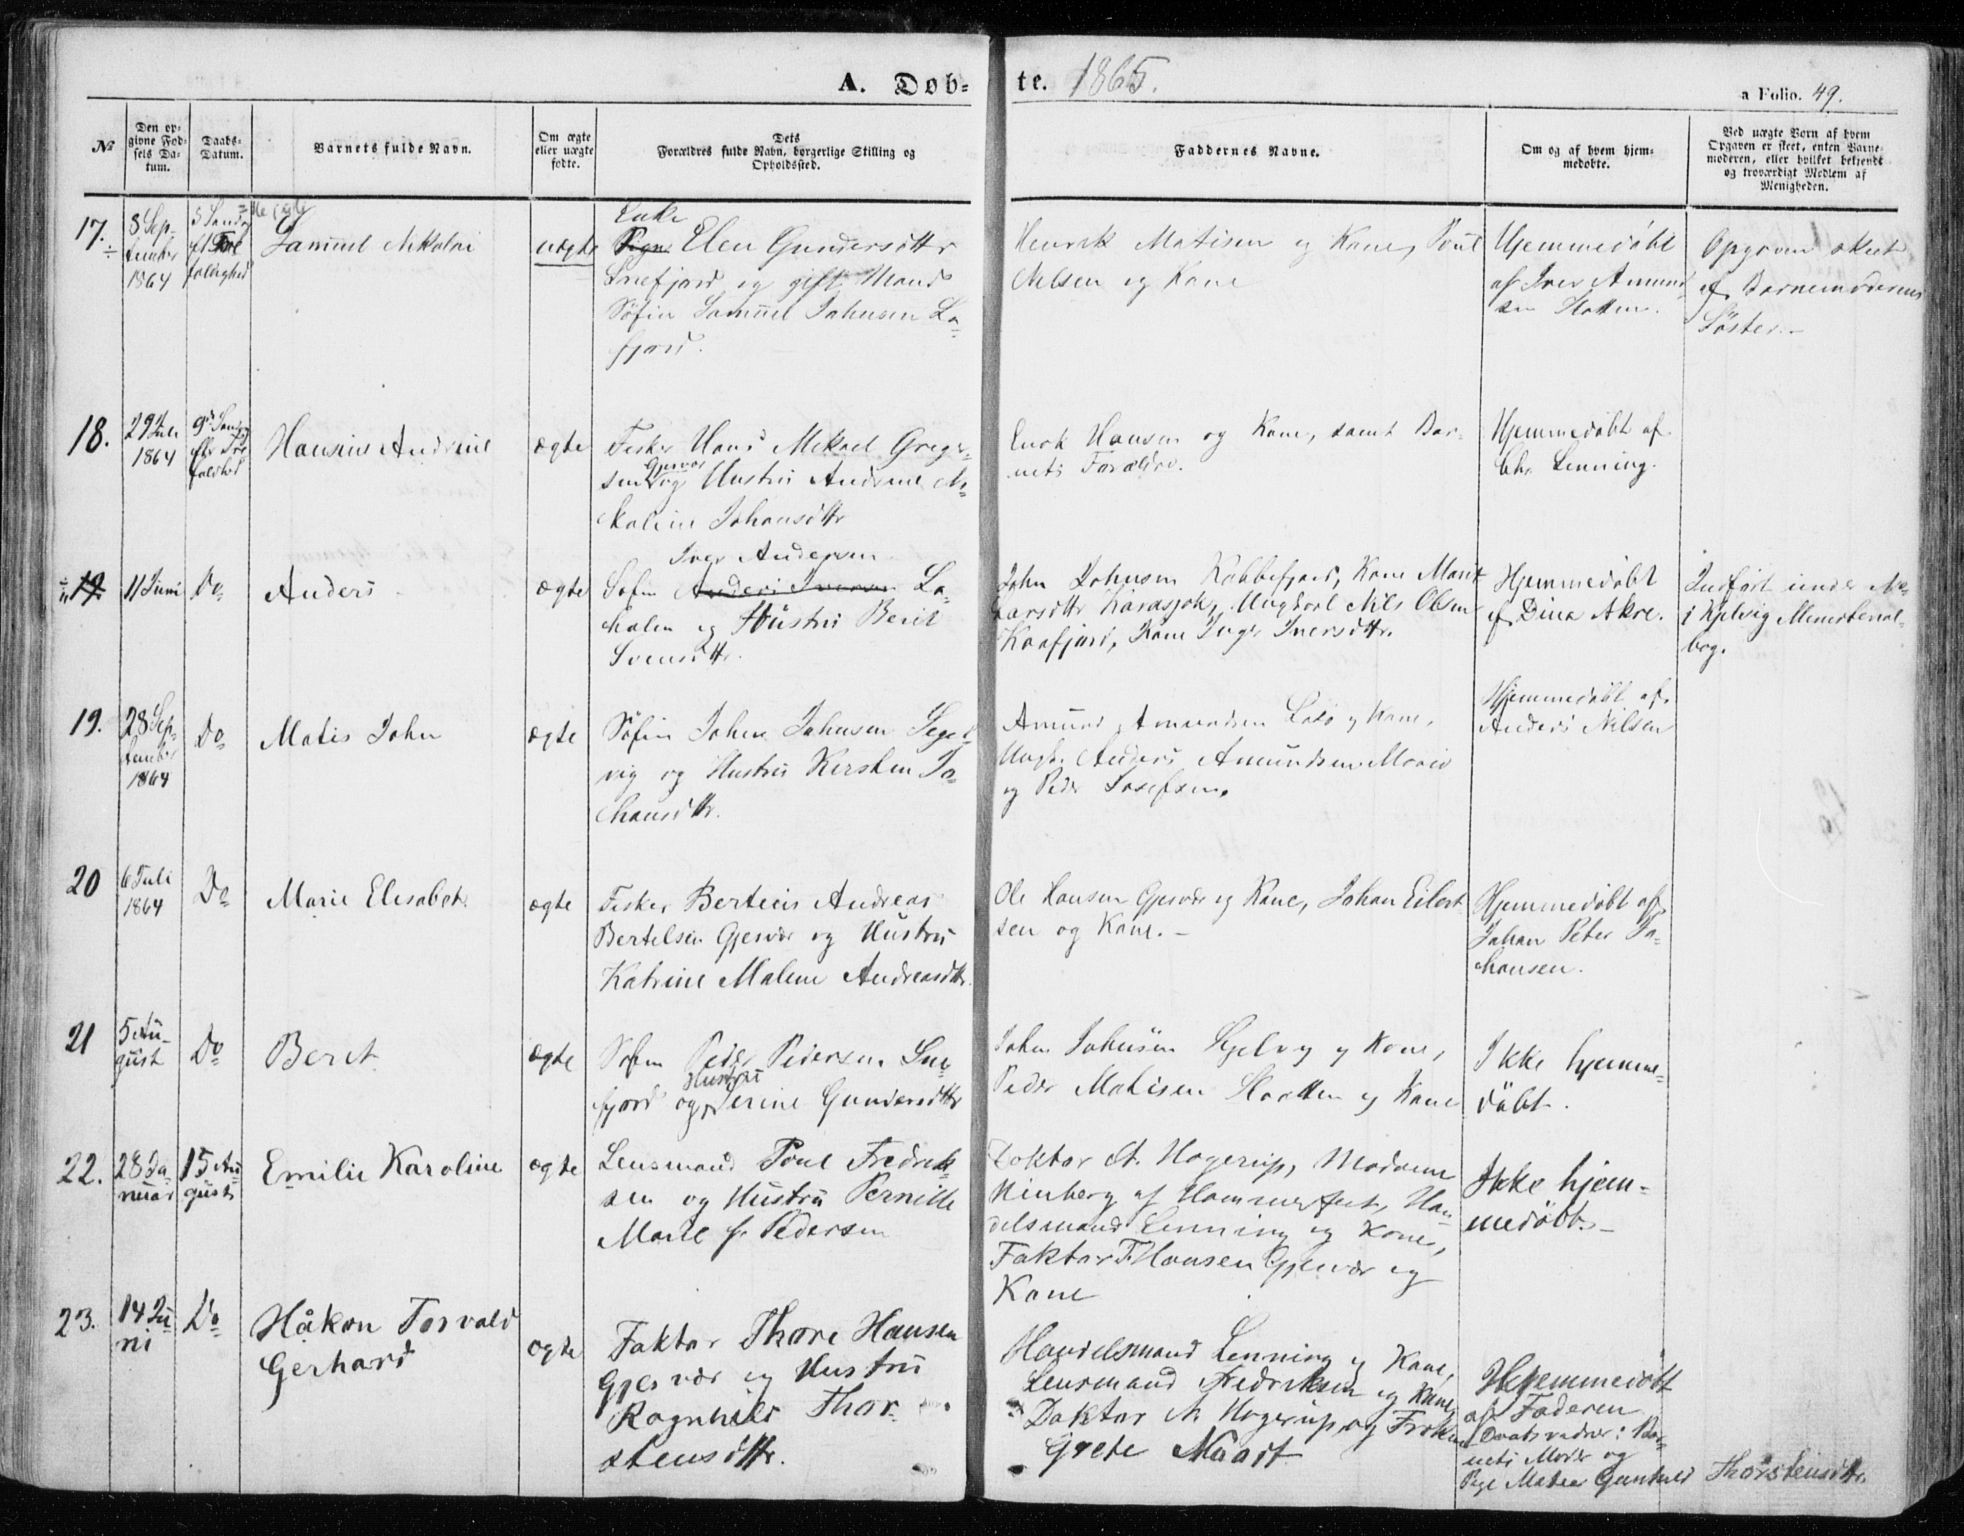 A. Døb-
te. 1865.
a Folio. 49.
No
Den op-
givne Fød-
sels Da-
tum.
Daabs-
Datum.
Barnets fulde Navn.
Om ægte
eller uægte
fødte.
Dets
Forældres fulde Navn, borgerlige Stilling og
Opholdssted.
Faddernes Navne.
Om og af hvem hjem-
medøbte.
Ved uægte Børn af hvem
Opgaven er skeet, enten Barne-
moderen, eller hvilket bekjendt
og troværdigt Medlem af
Menigheden.
17.
8 Sep-
tember
1864
5 Sondag
eft Tre
foldighed
Samuel Nikolai
uægte
Enke
Pige Elen Gundersdttr
Snefjord og gift Mand
Søfin Samuel Johnsen La-
fjord.
Henrik Matisen og Kone, Poul
Nilsen og Kone
Hjemmedøbt
af Iver Amund-
sen Hatten.
Opgaven skeet
af Barnemoderens
Søster.-
18.
29 Juli
1864
9de Sondag
eftr Tre
foldighed
Hansine Andrine
ægte
Fisker Hans Mikael Greger-
sen Gjesvær og Hustru Andrine Ni-
koline Johansdttr
Enok Hansen og Kone, samt Bar-
nets Forældre.
Hjemmedøbt af
Chr Lenning.
19.
11 Juni
Do
Anders
ægte
Iver Andersen
Søfin Anders Iversen La-
holm og Hustru Berit
Svensdttr.
John Johnsen Kobbefjord, Kone Marit
Larsdttr Karasjok, Ungkarl Nils Olsen
Kaafjord, Kone Inger Iversdttr.
Hjemmedøbt
af Dina Akre.
Indført under No
i Kjelvig Ministerial-
bog.
19.
28 Sep-
tember
1864
Do
Matis John
ægte
Søfin John Johnsen Segel-
vig og Hustru Kirsten Jo-
hansdttr.
Amund Amundsen og Kone,
Ungk. Anders Amundsen
og Peder Josefsen.
Hjemmedøbt af
Anders Nilsen
20
6 Juli
1864
Do
Marie Elisabet
ægte
Fisker Berteus Andreas
Bertelsen Gjesvær og Hustru
Katrine Malene Andreasdttr.
Ole Hansen Gjesvær og Kone, Johan Eilert-
sen og Kone.-
Hjemmedøbt af
Johan Peter Jo-
hansen.
21
5 Au-
gust
Do
Berit
ægte
Søfin Peder Pedersen Sne-
fjord og Hustru Serine Gundersdttr
John Johnsen Segelvig og Kone,
Peder Matisen Hatten og Kone
Ikke hjemme-
døbt.
22.
28 Ja
nuar
15 Au
gust
Emilie Karoline
ægte
Lensmand Poul Fredrik-
sen og Hustru Pernille
Marie f. Pedersen
Doktor A. Hagerup, Madame
Ninberg af Hammerfest, Han-
delsmand Lenning og Kone,
Faktor T. Hansen Gjesvær og
Kone
Ikke hjem-
medøbt.-
23.
14 Ju
ni
Do
Håkon Torvald
Gerhard
ægte
Faktor Thore Hansen
Gjesvær og Hustru
Ragnhild Thor-
stensdttr.
Handelsmand Lenning og Kone,
Lensmand Fredriksen og Kone,
Doktor A. Hagerup, og Frøken
Grete
Hjemmedøbt
af Faderen
Daabsvidner: Bar-
nets Moder og
Pige Matea Gunhild Thorstensdttr.